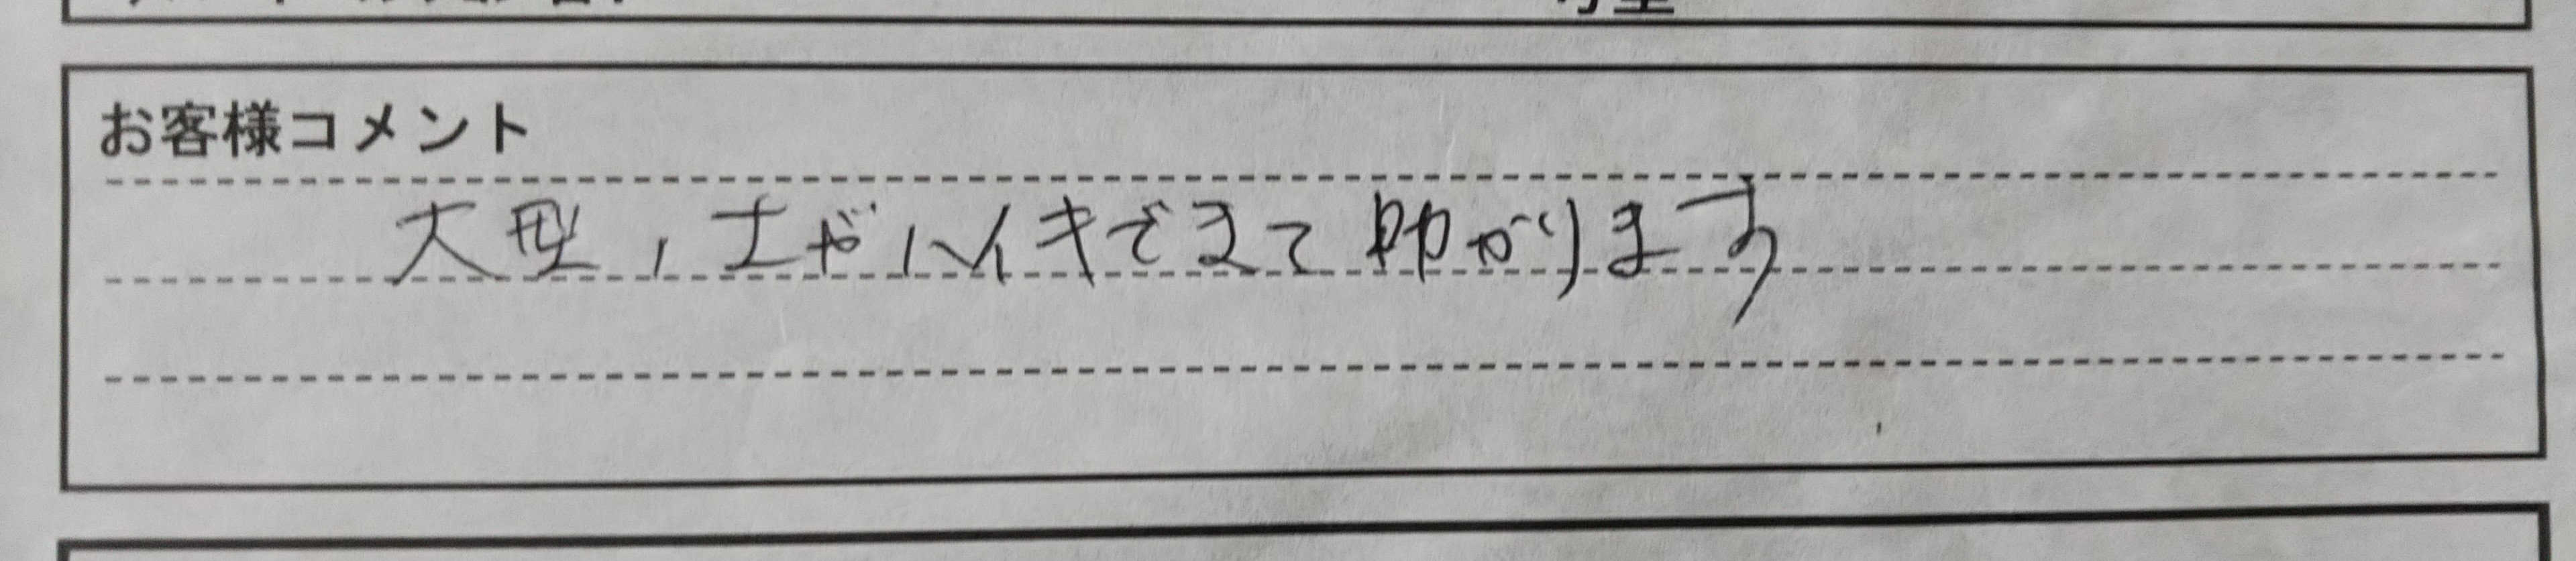 お客様コメント
大型、土がハイキできて助かります